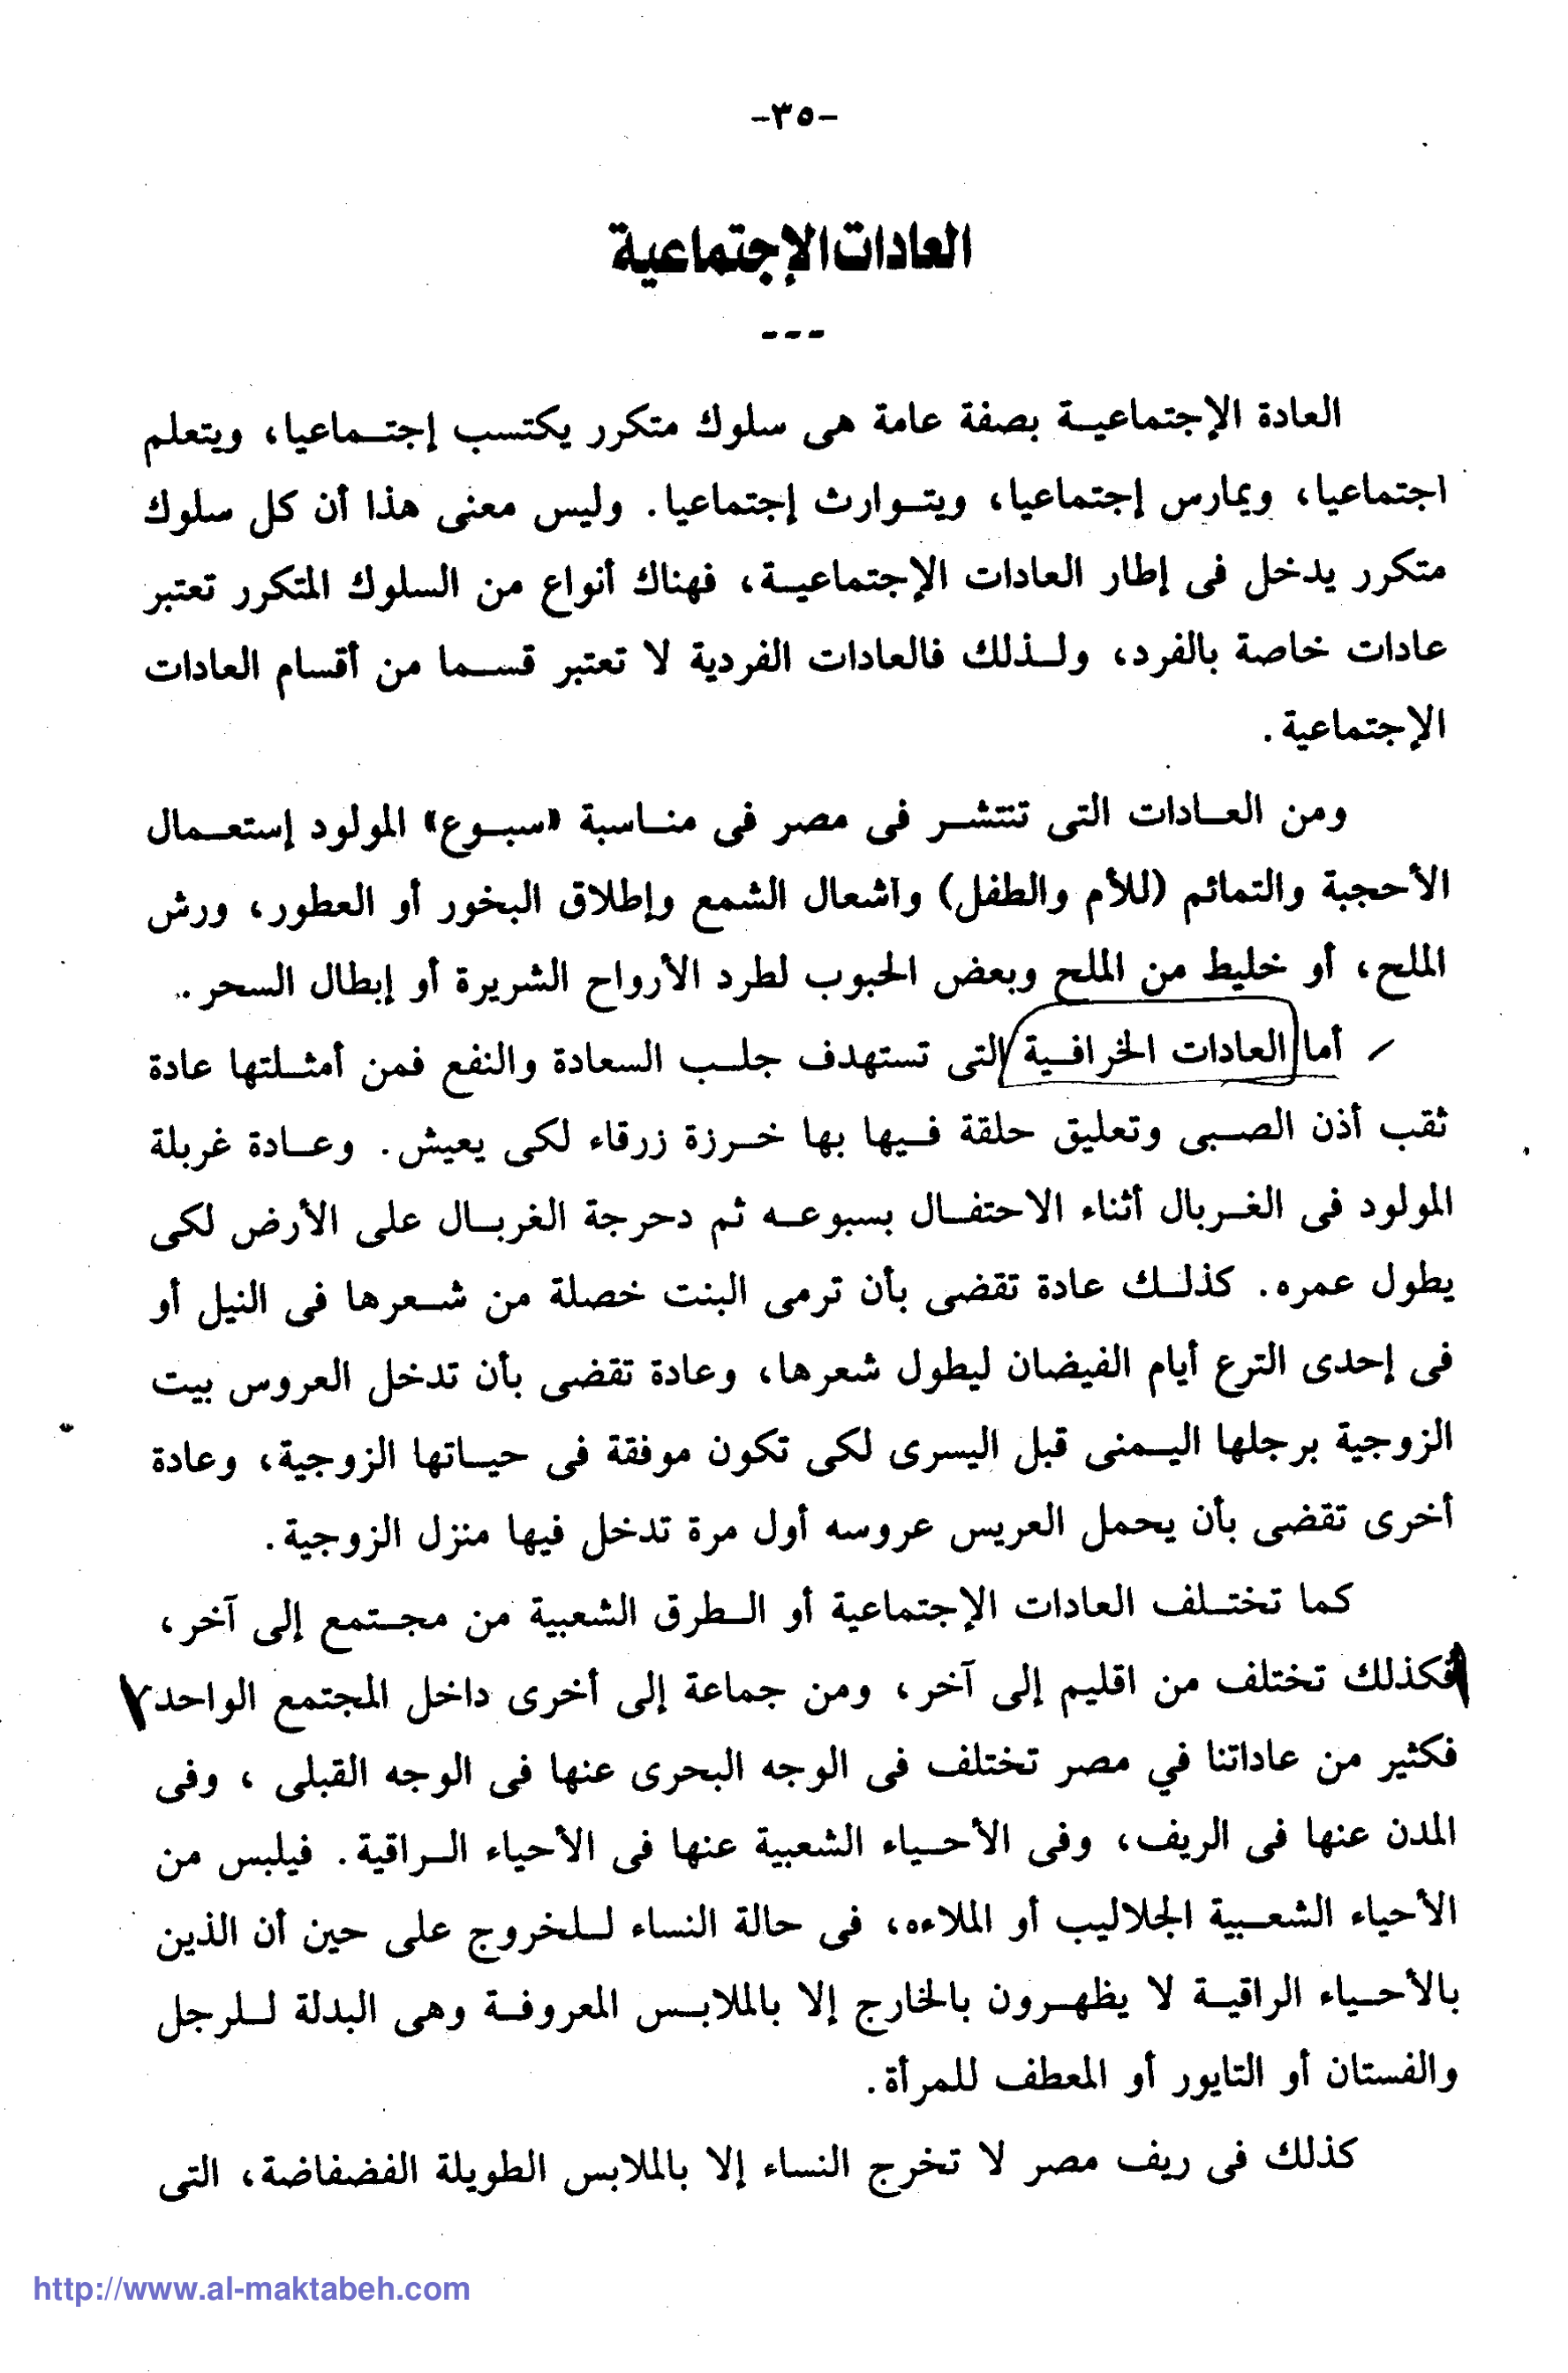 -٣٥-
العادات الإجتماعية
---
العادة الإجتماعية بصفة عامة هى سلوك متكرر يكتسب إجتماعيا، ويتعلم
اجتماعيا، ويمارس إجتماعيا، ويتوارث إجتماعيا. وليس معنى هذا أن كل سلوك
متكرر يدخل فى إطار العادات الإجتماعية، فهناك أنواع من السلوك المتكرر تعتبر
عادات خاصة بالفرد، ولذلك فالعادات الفردية لا تعتبر قسما من أقسام العادات
الإجتماعية.
ومن العادات التى تنتشر فى مصر فى مناسبة «سبوع» المولود إستعمال
الأحجبة والتمائم (للأم والطفل) وآشعال الشمع وإطلاق البخور أو العطور، ورش
الملح، أو خليط من الملح وبعض الحبوب لطرد الأرواح الشريرة أو إبطال السحر..
أما العادات الخرافية التى تستهدف جلب السعادة والنفع فمن أمثلتها عادة
ثقب أذن الصبى وتعليق حلقة فيها بها خرزة زرقاء لكى يعيش. وعادة غربلة
المولود فى الغربال أثناء الاحتفال بسبوعه ثم دحرجة الغربال على الأرض لكى
يطول عمره. كذلك عادة تقضى بأن ترمى البنت خصلة من شعرها فى النيل أو
فى إحدى الترع أيام الفيضان ليطول شعرها، وعادة تقضى بأن تدخل العروس بيت
الزوجية برجلها اليمنى قبل اليسرى لكى تكون موفقة فى حياتها الزوجية، وعادة
أخرى تقضى بأن يحمل العريس عروسه أول مرة تدخل فيها منزل الزوجية.
كما تختلف العادات الإجتماعية أو الطرق الشعبية من مجتمع إلى آخر،
فكذلك تختلف من اقليم إلى آخر، ومن جماعة إلى أخرى داخل المجتمع الواحد
فكثير من عاداتنا في مصر تختلف فى الوجه البحرى عنها فى الوجه القبلى ، وفى
المدن عنها فى الريف، وفى الأحياء الشعبية عنها فى الأحياء الراقية. فيلبس من
الأحياء الشعبية الجلاليب أو الملاءه، فى حالة النساء للخروج على حين أن الذين
بالأحياء الراقية لا يظهرون بالخارج إلا بالملابس المعروفة وهى البدلة للرجل
والفستان أو التايور أو المعطف للمرأة.
كذلك فى ريف مصر لا تخرج النساء إلا بالملابس الطويلة الفضفاضة، التى
http://www.al-maktabeh.com